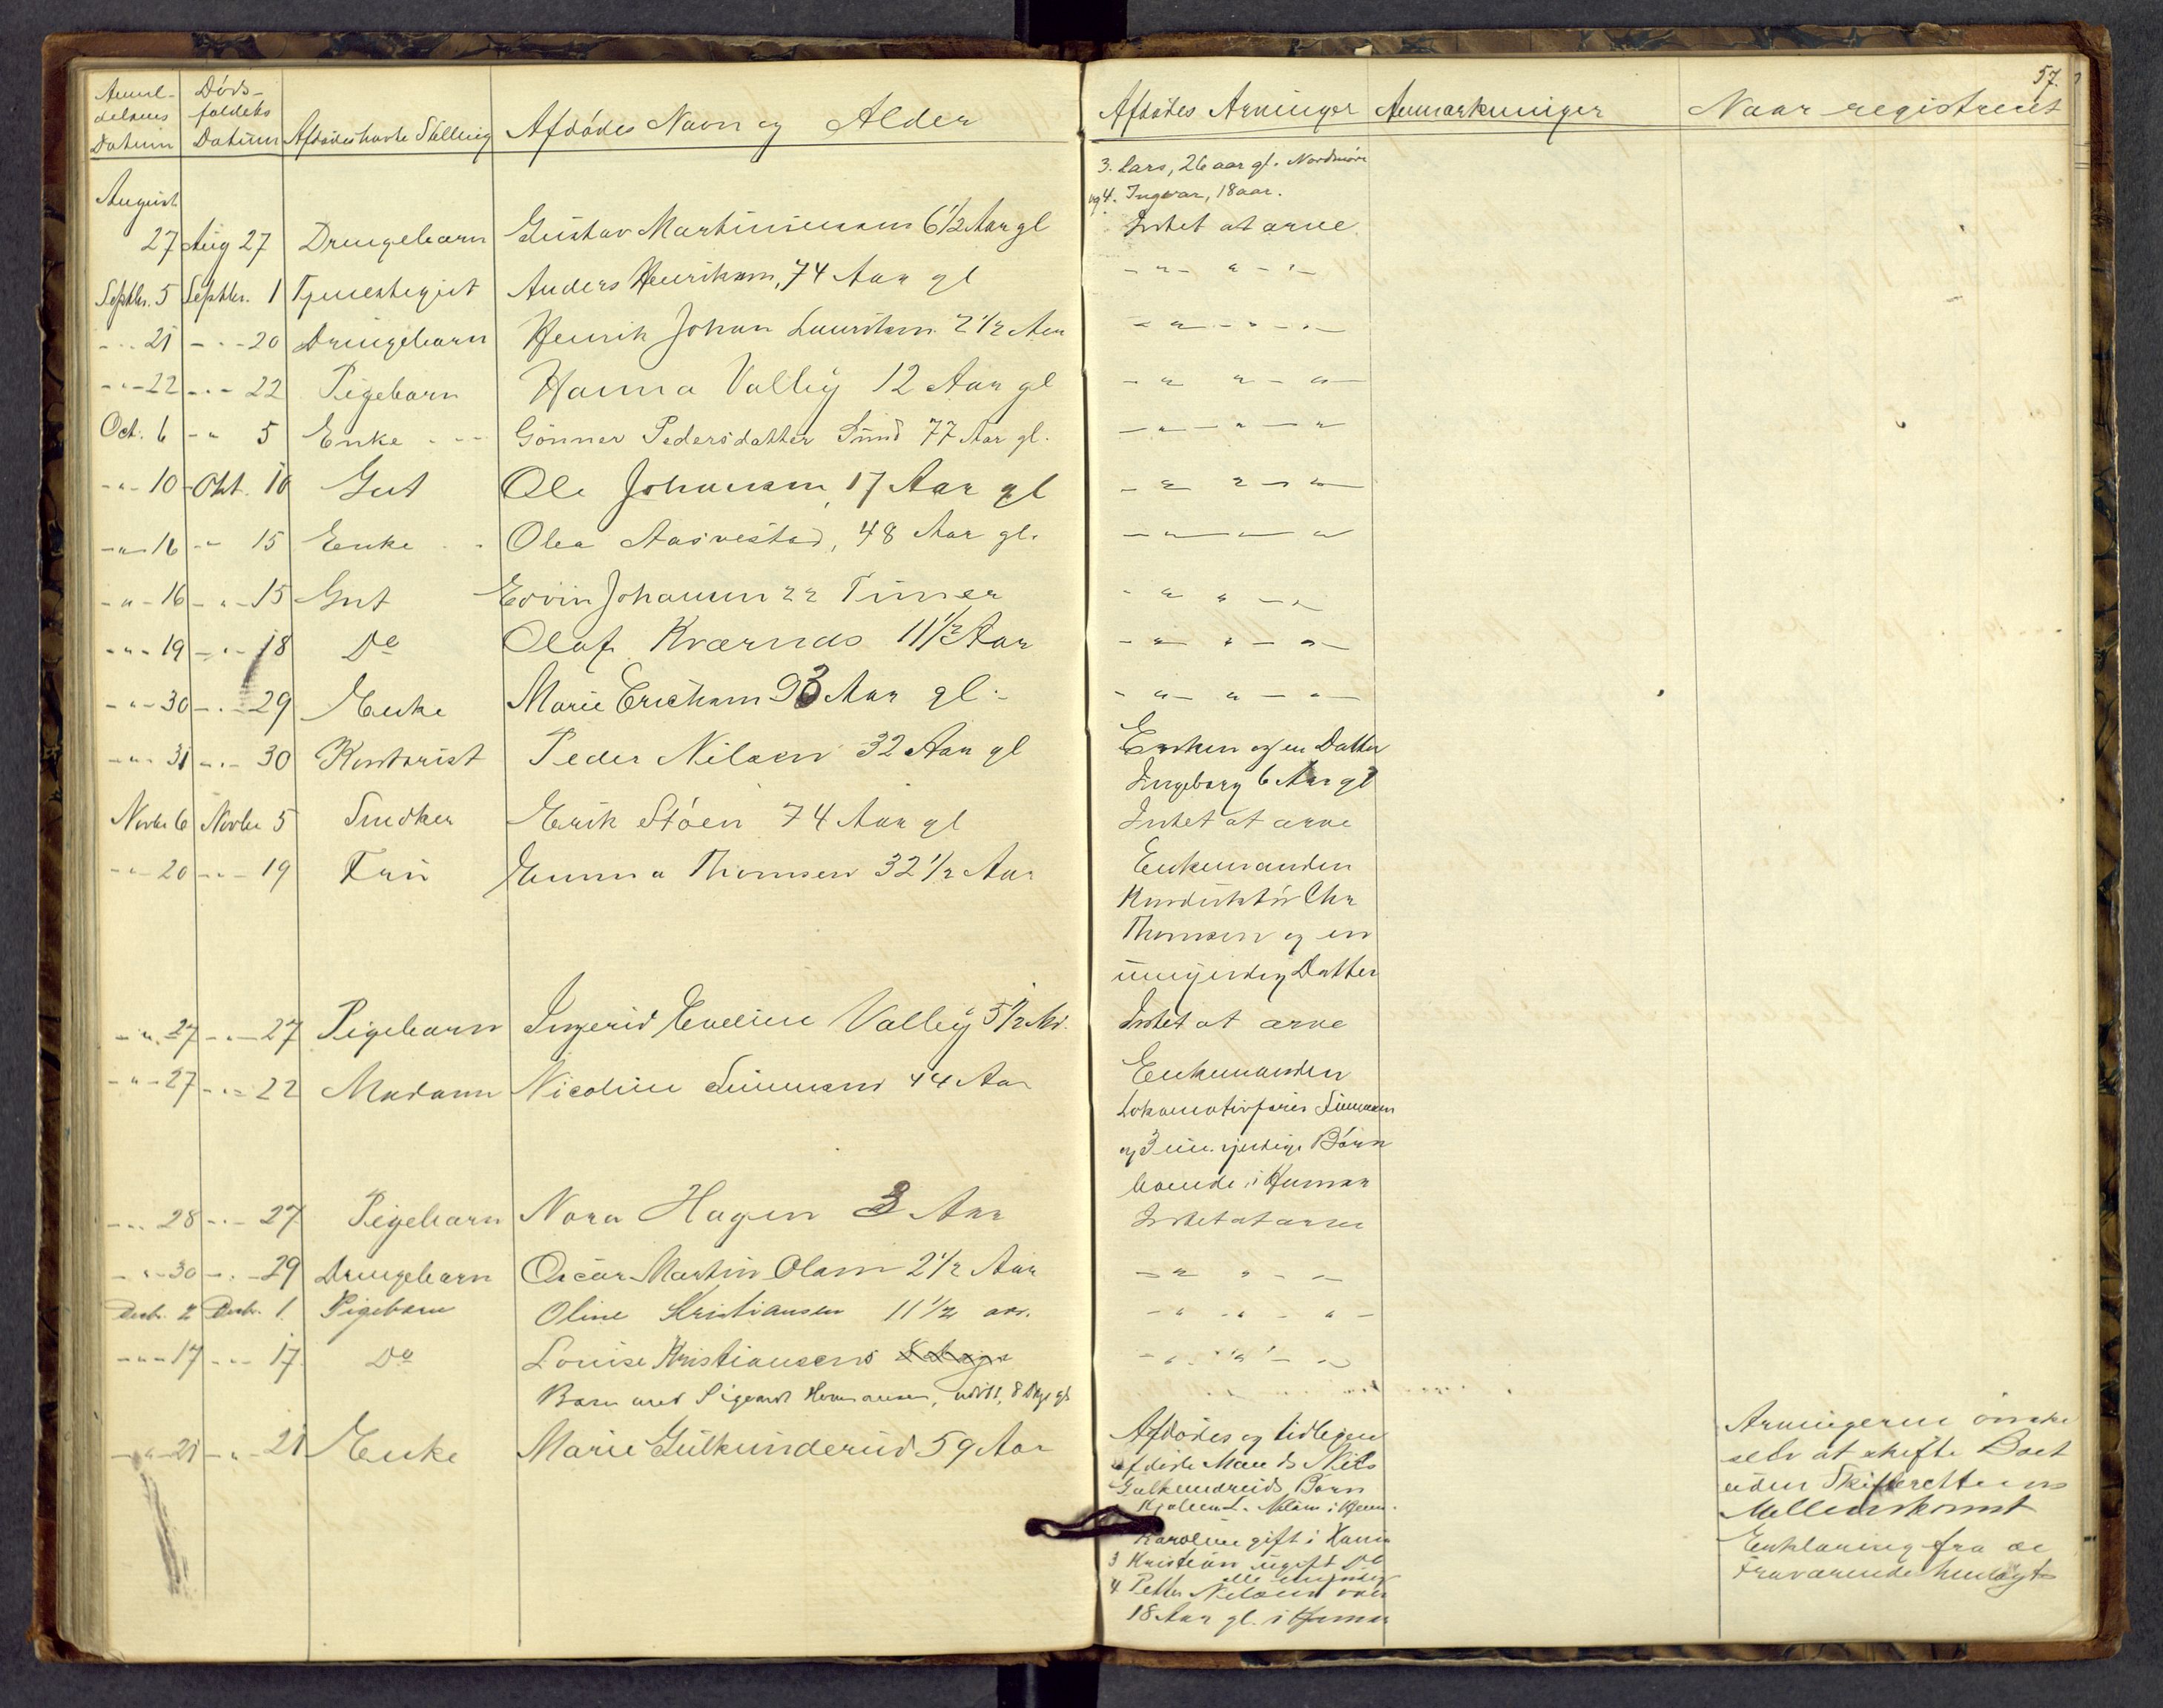 57.
Anmel-
delsens
Datum
Døds-
faldets
Datum
Afdødes havte Stilling
Afdødes Navn og Alder
Afdødes Arvinger
Anmærkninger
Naar registreret
3. Lars, 26 aar gl. Nordmøre
og 4. Ingvar, 18 aar.
August
27 Aug 27 Drengebarn Gustav Martiniussen 6 1/2 Aar gl Intet at arve
Septbr. 5 Septbr. 1 Anders Henriksen, 74 Aar gl - " - " - " -
- " - 21 - " - 20 Drengebarn Henrik Johan Lauritsen 2 1/2 Aar - " - " - " -
- " - 22 - " - 22 Pigebarn Hanna Valley 12 Aar gl - " - " - " -
Oct. 6 - " 5 Enke Gönner Pedersdatter Sund 77 Aar gl. - " - " - " -
- " - 10 Okt. 10 Gut Ole Johansen, 17 Aar gl - " - " - " -
- " - 16 - " 15 Enke Olea Aasvestad, 48 Aar gl. - " - " -
- " - 16 - " - 15 Gut Edvin Johansen 22 Timer - " - " - " -
- " - 19 - " - 18 Do Olaf Kværnås 11 1/2 Aar - " - " - " -
- " - 30 - " - 29 Enke Marie Ericksen 93 Aar gl. - " - " - " -
- " - 31 - " - 30 Kontorist Peder Nilsen 32 Aar gl Enken og en Datter
Ingeborg 6 Aar gl
Novbr 6 Novbr 5 Snedker Erik Støen 74 Aar gl Intet at arve
- " - 20 - " - 19 Fru Emma Thomsen 32 1/2 Aar Enkemanden
Konduktör Chr
Thomsen og en
umyndig Datter
- " - 27 - " - 27 Pigebarn Ingerid Eveline Valley 5 1/2 Md. Intet at arve
- " - 27 - " - 22 Madam Nicoline 44 Aar Enkemanden
Lokomotivfører
og 3 umyndige Børn
boende i Hamar
- " - 28 - " - 27 Pigebarn Nora Hagen 3 Aar Intet at arve
- " - 30 - " - 29 Drengebarn Oscar Martin Olsen 2 1/2 Aar - " - " - " -
Decbr. 2 Decbr. 1. Pigebarn Oline Kristiansen 11 1/2 aar. - " - " - " -
- " - 17 - " - 17. Do Louise Kristiansens - " - " - " -
Barn med Sigvart Hermansen, 8 Dage gl
- " - 21 - " - 21 Enke Marie Gulkunderud 59 Aar Afdødes og tidligere
afdøde Mands Nils
Gulkunderuds Børn
Karoline gift i
3 Kristian ugift Do
alle myndig
4 Petter Nilsen over
18 Aar gl. i Hamar
Arvingerne ønske
selv at skifte Boet
uden Skifterettens
Mellemkomst
Erklæring fra de
Fraværende henlagt